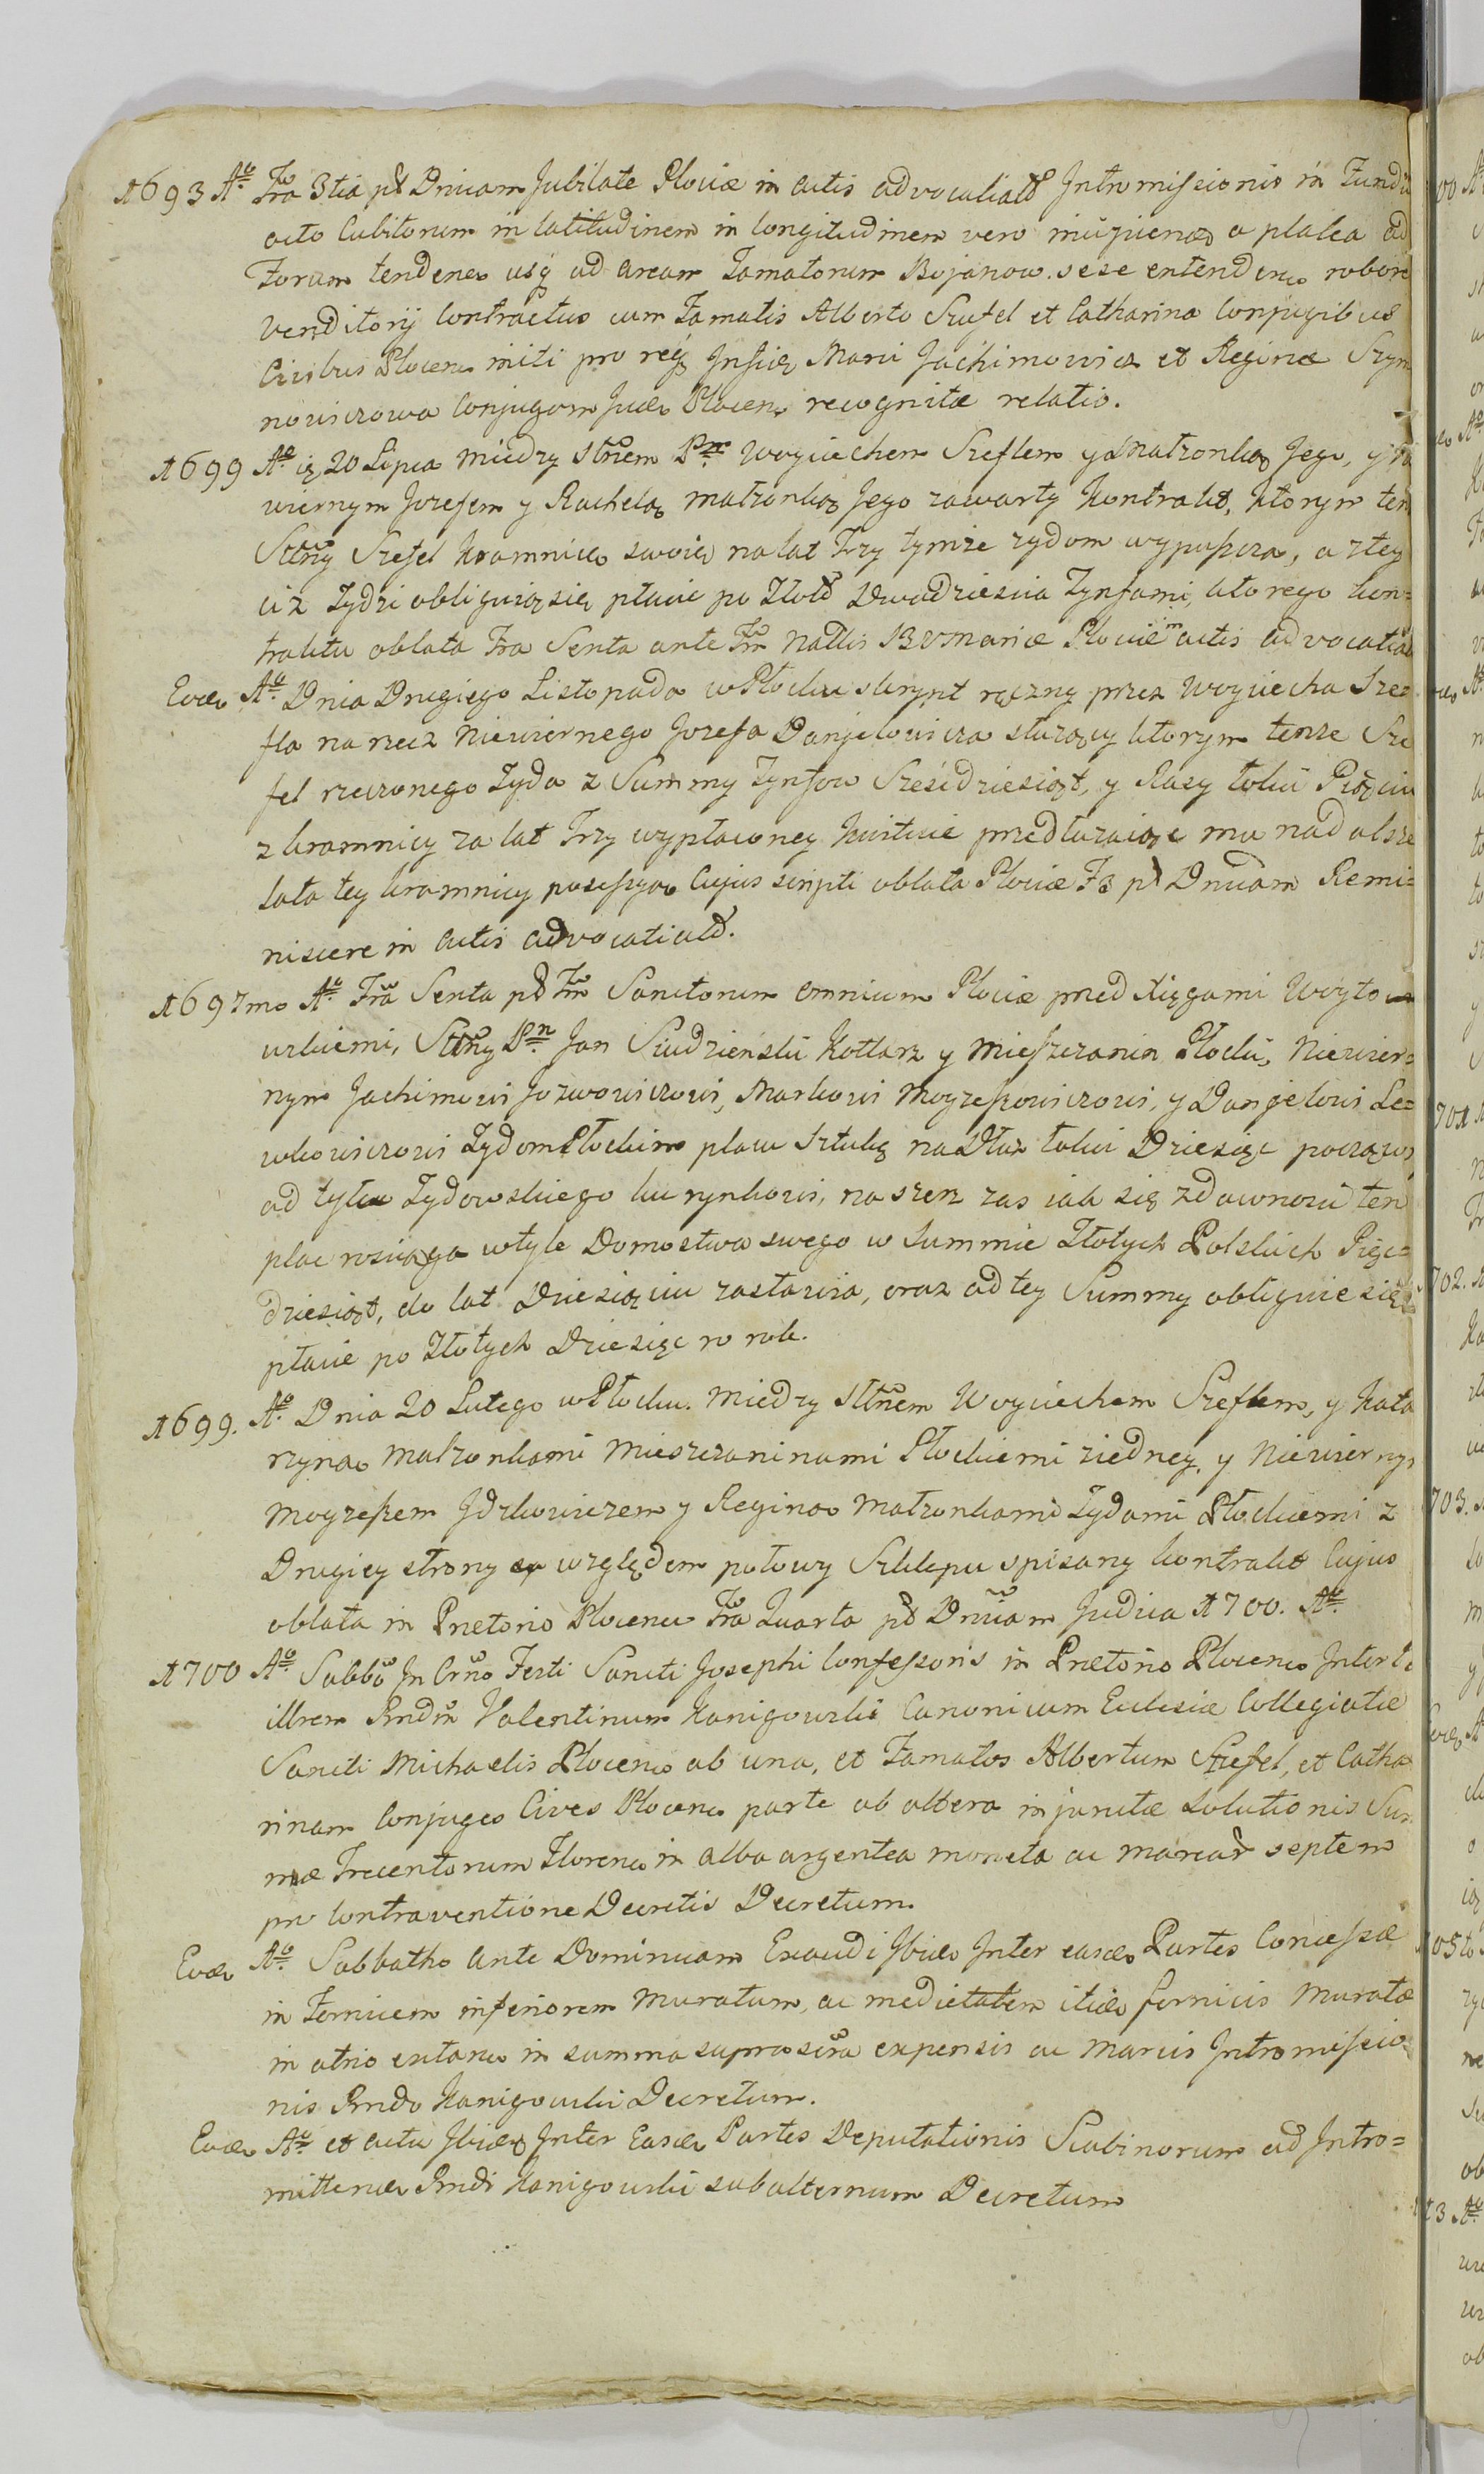 1693 Aº Fra 3tia pt Dnicam Jubilate Plociæ in actis advocatialt Intromissionis in Fundu
octo Cubitorum in latitudinem in longitudinem vero incipiend a platea ad
Forum tendene usq ad aream Famatorum Bojanow. sese extendene robore
Venditorij Contractus cum Famatis Alberto Szefel et Catharina Conjugibus
Civibus Plocens initi pro Marci Jachimowicz et Reginæ Szym
nowiczowa Conjugum Plocens recognitæ relatio.
1699 Aº 20 Lipca miedzy Sttnem Pnm Woyciechem Szeflem y Matzonką Jego, y
wiernym Jozefem y Rachelą matzonką Jego zawarty Kontrakt, Ktorym ten
Sttny Szefel Kramnicę swoię na lat Trzy tymze zydom wypuszcza, a ztey
ciz Zydzi obliguią się płacić po Złott Dwadziescia Tynfami, ktorego kon=
traktu oblata Fra Sexta ante Fm Natlis BVMariæ Plociæ in actis advocatial
Eode Aº Dnia Drugiego Listopada w Płocku skrypt ręczny przez Woyciecha Sze=
fla na rzecz Niewiernego Jozefa Danjelowicza słuzący ktorym tenze Sze
fel rzeczonego Zyda z Summy Tynfow Szesćdziesiąt, y Rasy łokci Pięciu
z kramnicy za lat Trzy wypłaconey kwituie przedłuzaiąc mu nadalsze
lata tey kramnicy posessyą Cujus scripti oblata Plociæ F3 pt Dnicam Remi=
niscere in actis advocatialt.
1697mo Aº Fra Sexta pt Fm Sanctorum omnium Plociæ przed Xięgami Woytow
wskiemi, Sttny Pn Jan Siudzienski Kotlarz y Mieszczanin Płocki, Niewier=
nym Jachimowi Jozwowiczowi, Markowi Moyzeszowiczowi, y Danjelowi Le=
wkowiczowi Zydom Płockim placu Sztukę na Dłuz łokci Dziesięc począwszy
od tyłu Zydowskiego ku rynkowi, na szerz zas iak się zdawnosci ten
plac rosciąga w tyle Domostwa swego w Summie Złotych Polskich Pięc=
dziesiąt, do lat Dziesięciu zastawia, oraz od tey Summy obliguie się
płacić po Złotych Dziesięc ro rok.
1699. Aº Dnia 20 Lutego w Płocku. Miedzy Sttnem Woyciechem Szeflem, y Kata
rzyną Matzonkami Mieszczaninami Płockiemi ziedney, y Niewiernym
Moyzeszem Jdzkowiczem y Reginą Matzonkami Zydami Płockiemi z
Drugiey strony względem połowy Szklepu spisany kontrakt Cujus
oblata in Prætorio Plocensi Fra Quarta pt Dnicam Judica 1700. Aº
1700 Aº Sabbo In Crno Festi Sancti Josephi Confessoris in Prætorio Plocens Inter
illrem Rndm Valentinum Kanigowski Canonicum Ecclesiæ Collegiatæ
Sancti Michaelis Plocens ab una, et Famatos Albertum Szefel, et Catha
rinam Conjuges Cives Plocens parte ab altera injunctæ solutionis Sum
mæ Trecentorum Florens in alba argentea moneta ac marcar septem
pro Contraventione Decretis Decretum.
Eode Aº Sabbatho ante Dominicam Exaudi Ibide Inter easde Partes Concessæ
in Fornicem inferiorem Muratum, ac medietatem itide fornicis Muratæ
in atrio extans in summa suprascra expensis ac Marcis Intromissio
nis Rndo Kanigowski Decretum.
Eode Aº et actu Ibide Inter Easde Partes Deputationis Scabinorum ad Intro=
mittend Rndi Kanigowski subalternum Decretum